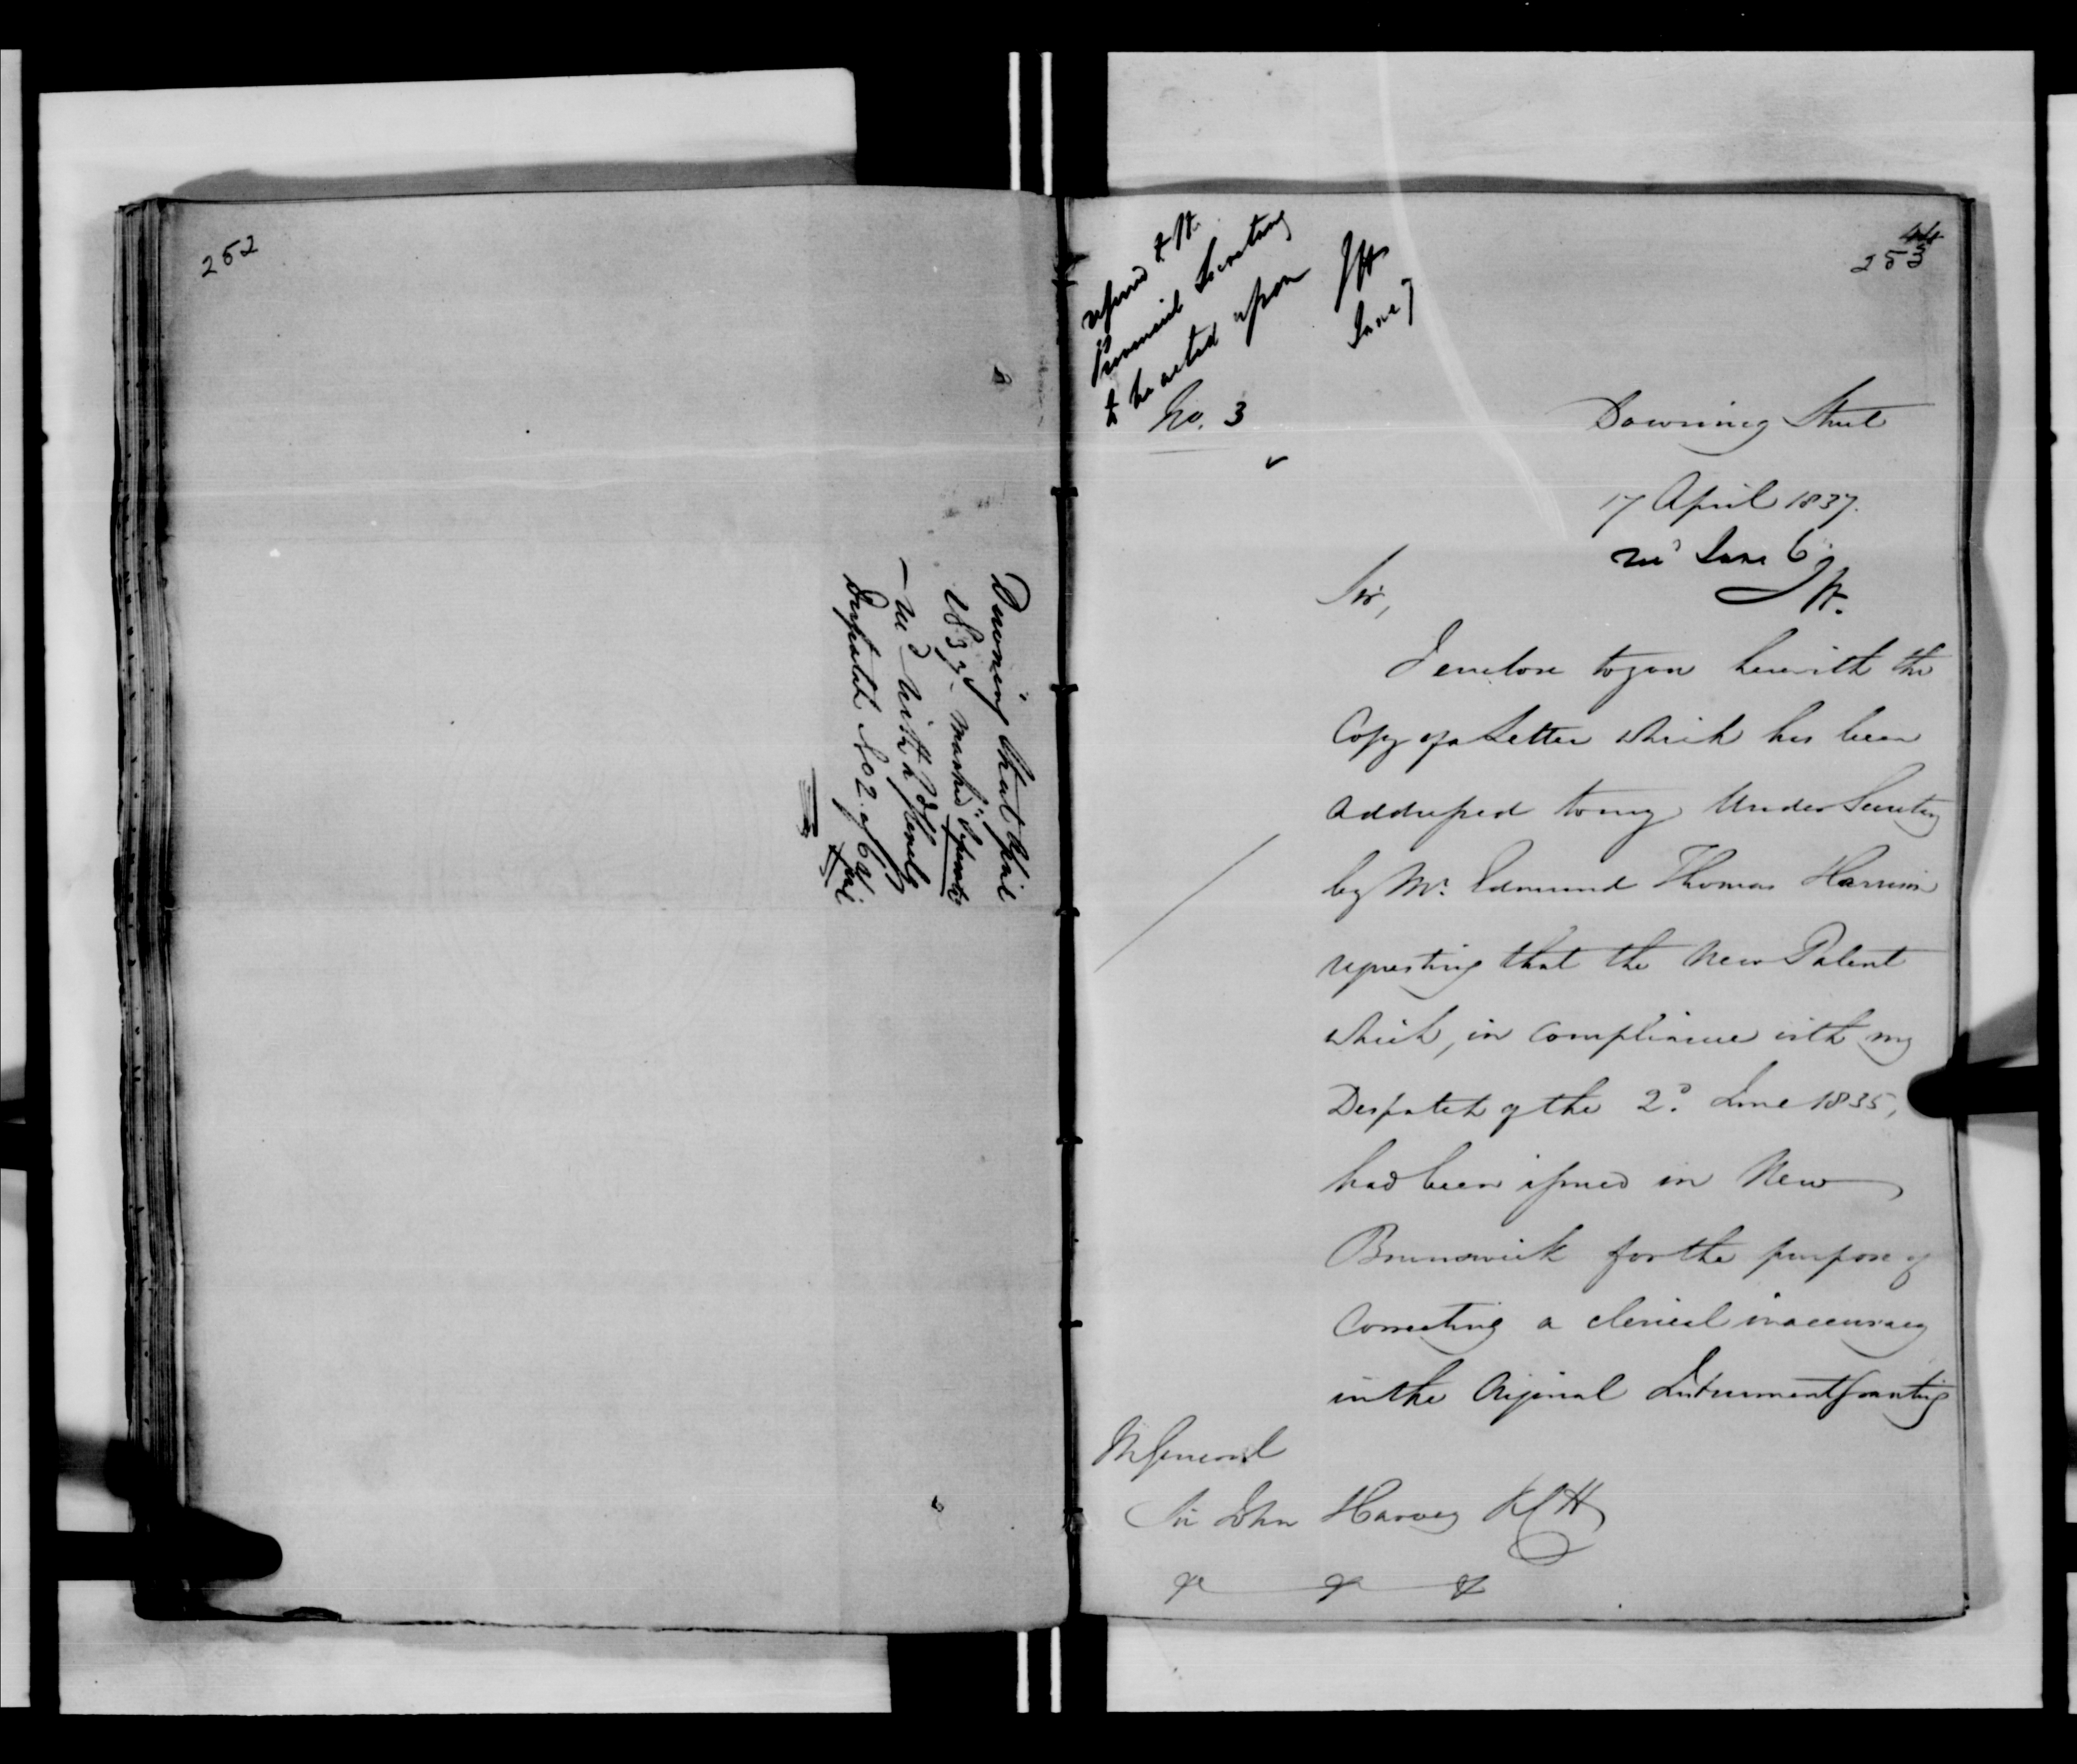 252
Downing Street April
1837. marked "Separate"
— rec'd with
Despatch No 2. of 6th
April
44
253
referred to the
Provincial Secretary
to be acted upon
JH
June 7
No. 3
Downing Street
17 April 1837.
rec'd June 6.
JH.
Sir,
I enclose to you herewith the
Copy of a Letter which has been
addressed to my Under Secretary
by Mr. Edmund Thomas Harrison
requesting that the New Patent
which, in compliance with my
Despatch of the 2d. June 1835,
had been issued in New
Brunswick for the purpose of
Correcting a clerical inaccuracy
in the Original Instrument granting
M General
Sir John Harvey KCH
&c &c &c